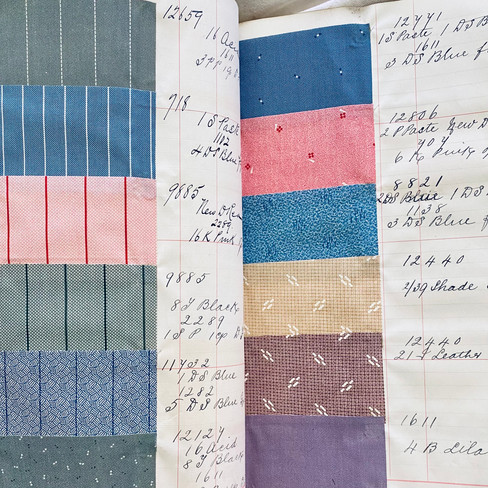 12659
16 Aci
1611
3 pp 19
918
1 S Past
1102
4 DS Blue
9885
New D
2289
16 K Pink
9885
8 J Black
2289
1 S P 1 cp D
11432
1 DS Blue
1282
5 DS Blue
12124
16 Acid
8 J Black
1611
12441
1 S Paste 1 DS B
1611
3 DS Blue f
12806
2 P Paste New D
404
6 K Pink
8821
DS Blue 1 DS
1138
3 DS Blue f
12440
2/39 Shade
12440
21 Leather
1611
4 B Lila